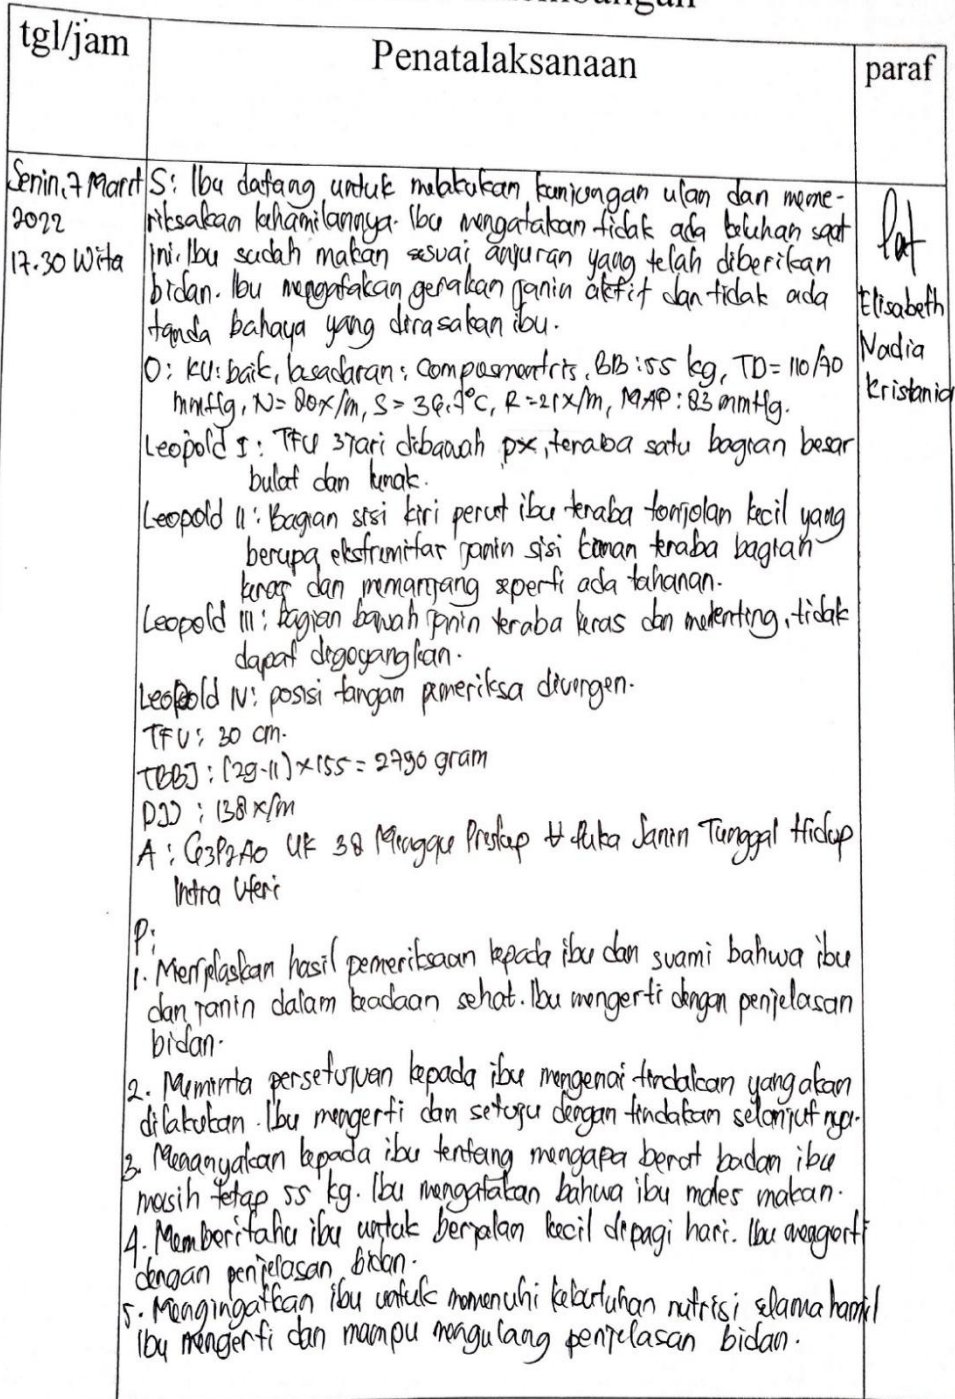 tgl/jam
Penatalaksanaan
paraf
Senin, 7 Maret
2022
17.30 Wita
S: Ibu datang untuk melakukan kunjungan ulan dan meme-
riksakan kehamilannya. Ibu mengatakan tidak ada keluhan saat
ini. Ibu sudah makan sesuai anjuran yang telah diberikan
bidan. Ibu mengatakan gerakan janin aktif dan tidak ada
tanda bahaya yang dirasakan ibu.
Elisabeth
Nadia
Kristania
O: KU: baik, kesadaran: Composmentris, BB: 55 kg, TD= 110/70
mmHg, N= 80x/m, S= 36.7°C, R=21x/m, MAP: 83 mmHg.
Leopold I: TFU 3 jari dibawah px, teraba satu bagian besar
bulat dan lunak.
Leopold II: Bagian sisi kiri perut ibu teraba tonjolan kecil yang
berupa ekstrimitas janin sisi kanan teraba bagian
keras dan memanjang seperti ada tahanan.
Leopold III: Bagian bawah janin teraba keras dan melenting, tidak
dapat digoyangkan.
Leopold IV: posisi tangan pemeriksa divergen.
TFU: 30 cm.
TBBJ: (29-11)x155 = 2790 gram
DJJ: 138 x/m
A: G3P2A0 UK 38 Minggu Preskep Puka Janin Tunggal Hidup
Intra Uteri
P:
1. Menjelaskan hasil pemeriksaan kepada ibu dan suami bahwa ibu
dan janin dalam keadaan sehat. Ibu mengerti dengan penjelasan
bidan.
2. Meminta persetujuan kepada ibu mengenai tindakan yang akan
dilakukan. Ibu mengerti dan setuju dengan tindakan selanjutnya.
3. Menanyakan kepada ibu tentang mengapa berat badan ibu
masih tetap 55 kg. Ibu mengatakan bahwa ibu males makan.
4. Memberitahu ibu untuk berjalan kecil dipagi hari. Ibu mengerti
dengan penjelasan bidan.
5. Mengingatkan ibu untuk memenuhi kebutuhan nutrisi selama hamil
Ibu mengerti dan mampu mengulang penjelasan bidan.